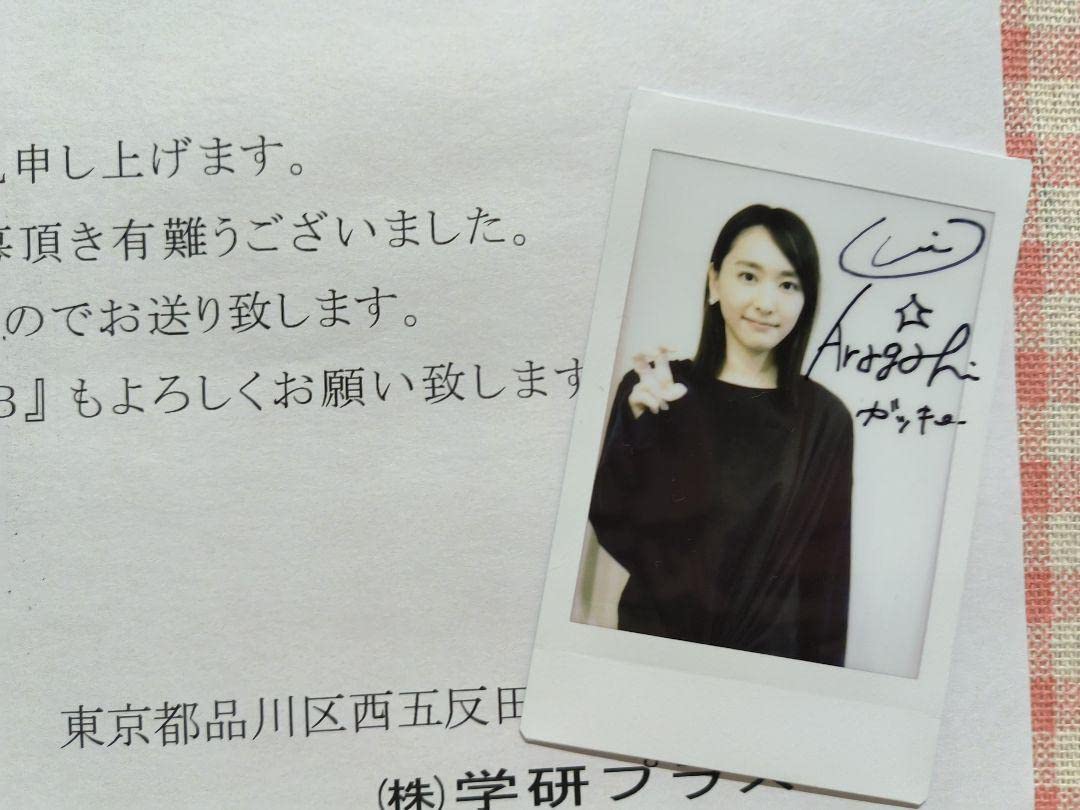 申し上げます。
募頂き有難うございました。
のでお送り致します。
3』もよろしくお願い致します
東京都品川区西五反田
(株)学研プラス
☆
Aragaki
ガッキー